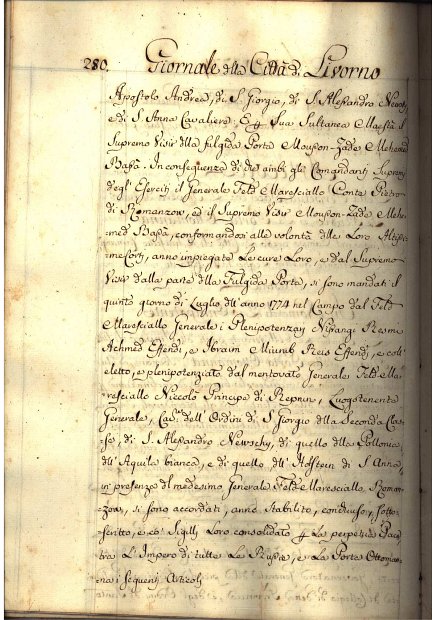 280. Giornale della Città di Livorno
Apostolo Andrea, di S. Giorgio, di S. Alessandro Newsky,
e di S. Anna Cavaliere. E Sua Sultanea Maestà il
Supremo Visir della fulgida Porta Mouson-Zade Mehemed
Bassà. In conseguenza di che ambi gli Comandanti Supremi
degl' Eserciti il Generale Feld Maresciallo Conte Pietro
di Romanzow, ed il Supremo Visir Mouson-Zade Mehe-
med Bassà, conformandosi alle volontà delle Loro Altissi-
me Corti, anno impiegate Le cure Loro, e dal Supremo
Visir dalla parte della Fulgida Porta, si sono mandati il
quinto giorno di Luglio dell' anno 1774 nel Campo del Feld
Maresciallo Generale i Plenipotenzarj Nissangi Resmi
Achmed Effendi, e Ibraim Miunib Reis Effendi, e coll'
eletto, e plenipotenziato dal mentovato Generale Feld-Ma-
resciallo Niccolò Principe di Repnin, Luogotenente
Generale, Cav.re dell' Ordini di S. Giorgio della Seconda Clas-
se, di S. Alessandro Newschy, di quello della Pollonia,
dell' Aquila bianca, e di quello dell' Holstein di S. Anna,
in presenza del medesimo Generale Feld-Maresciallo Roman-
zow, si sono accordati, anno stabilito, conchiuso, sotto-
scritto, e co' Sigilli Loro consolidato la perpetua Pace
tra L' Impero di tutte Le Russie, e La Porta Ottoman-
na i seguenti Articoli